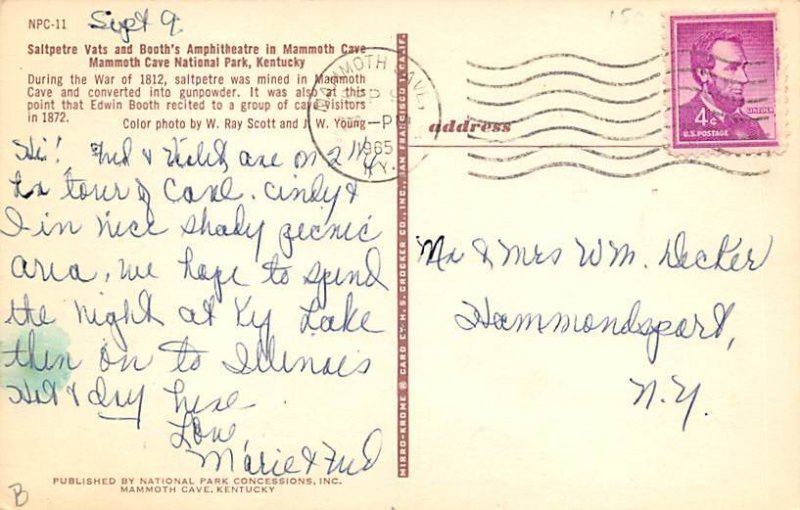 NPC-11 Sept 9
Saltpetre Vats and Booth's Amphitheatre in Mammoth Cave
Mammoth Cave National Park, Kentucky
During the War of 1812, saltpetre was mined in Mammoth
Cave and converted into gunpowder. It was also at this
point that Edwin Booth recited to a group of cave visitors
in 1872.
Color photo by W. Ray Scott and J. W. Young
Hi! Fred & are on 2 1/4
hr tour of Cave. Cindy &
I in nice shady picnic
area, we hope to spend
the night at Ky Lake
then on to Illinois
Hot & dry here
Love,
Marie & Fred
PUBLISHED BY NATIONAL PARK CONCESSIONS, INC.
MAMMOTH CAVE, KENTUCKY
B
MIRRO-KROME ® CARD BY H. S. CROCKER CO., INC., SAN FRANCISCO 1, CALIF.
MAMMOTH CAVE,
SEP 9
PM
1965
KY.
address
LINCOLN
4¢
U.S. POSTAGE
Mr & Mrs Wm. Decker
Hammondsport,
N.Y.